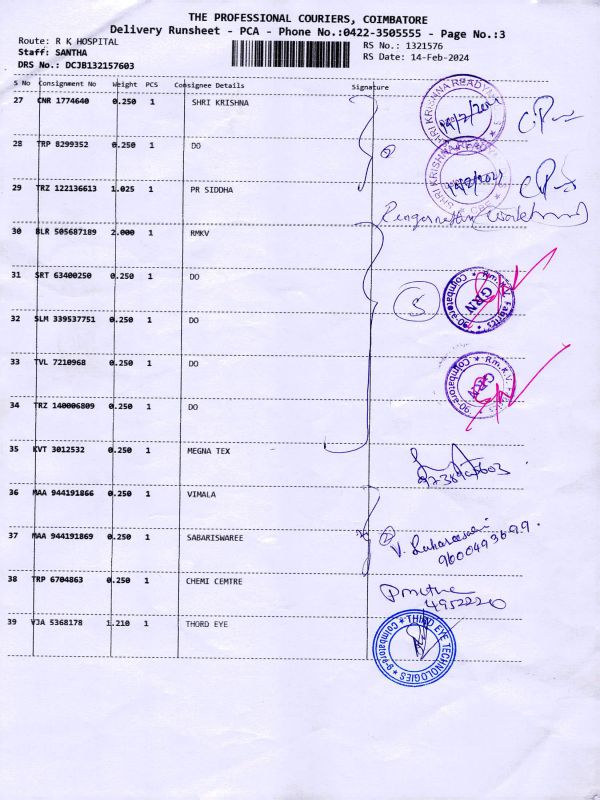 THE PROFESSIONAL COURIERS, COIMBATORE
Delivery Runsheet - PCA - Phone No.:0422-3505555 - Page No.:3
Route: R K HOSPITAL
RS No.: 1321576
Staff: SANTHA
RS Date: 14-Feb-2024
DRS No.: DCJB132157603
S No Consignment No Weight PCS Consignee Details Signature
27 CNR 1774640 0.250 1 SHRI KRISHNA
28 TRP 8299352 0.250 1 DO
29 TRZ 122136613 1.025 1 PR SIDDHA
30 BLR 505687189 2.000 1 RMKV
31 SRT 63400250 0.250 1 DO
32 SLM 339537751 0.250 1 DO
33 TVL 7210968 0.250 1 DO
34 TRZ 140006809 0.250 1 DO
35 KVT 3012532 0.250 1 MEGNA TEX
36 MAA 944191866 0.250 1 VIMALA
37 MAA 944191869 0.250 1 SABARISWAREE
9600493699.
38 TRP 6704863 0.250 1 CHEMI CEMTRE
39 VJA 5368178 1.210 1 THORD EYE
SHRI KRISHNA READYM
SHRI KRISHNA
Rm.K.V. Fabrics * Coimbatore-
GRN
Rm.K.V.
Coimbatore-
GRN
THIRD EYE TECHNOLOGIES
Coimbatore-9